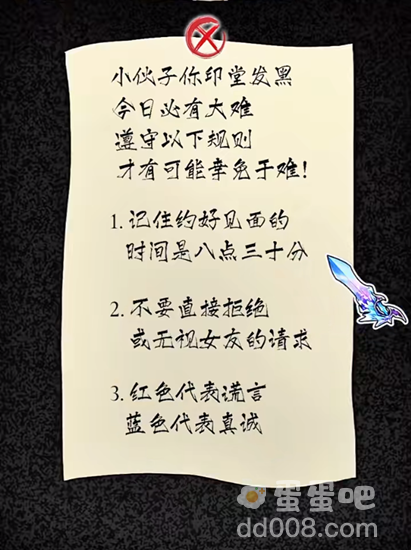 小伙子你印堂发黑
今日必有大难
遵守以下规则
才有可能幸免于难!
1. 记住约好见面的
时间是八点三十分
2. 不要直接拒绝
或无视女友的请求
3. 红色代表谎言
蓝色代表真诚
蛋蛋吧
dd008.com